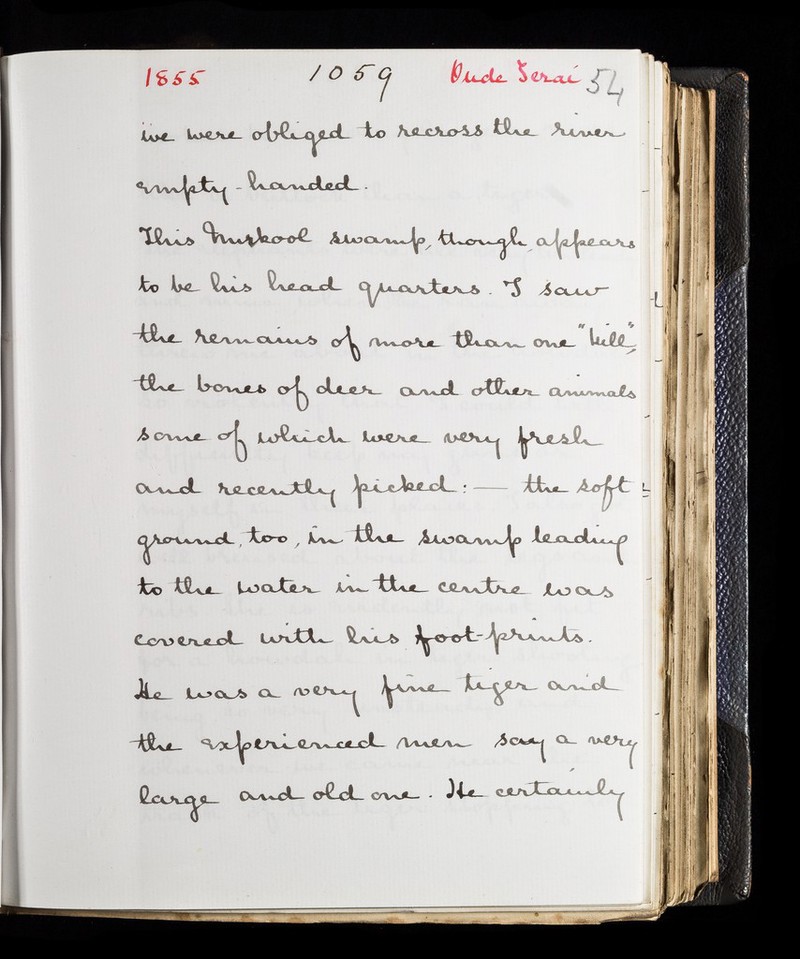 1855 1059 Oude Terai 54
we were obliged to recross the river
empty-handed.
This Nurkool swamp, though, appears
to be his head quarters. I saw
the remains of more than one "kill",
the bones of deer and other animals
some of which were very fresh
and recently picked: — the soft
ground, too, in the swamp leading
to the water in the centre was
covered with his foot-prints.
He was a very fine tiger and
the experienced men say a very
large and old one. He certainly